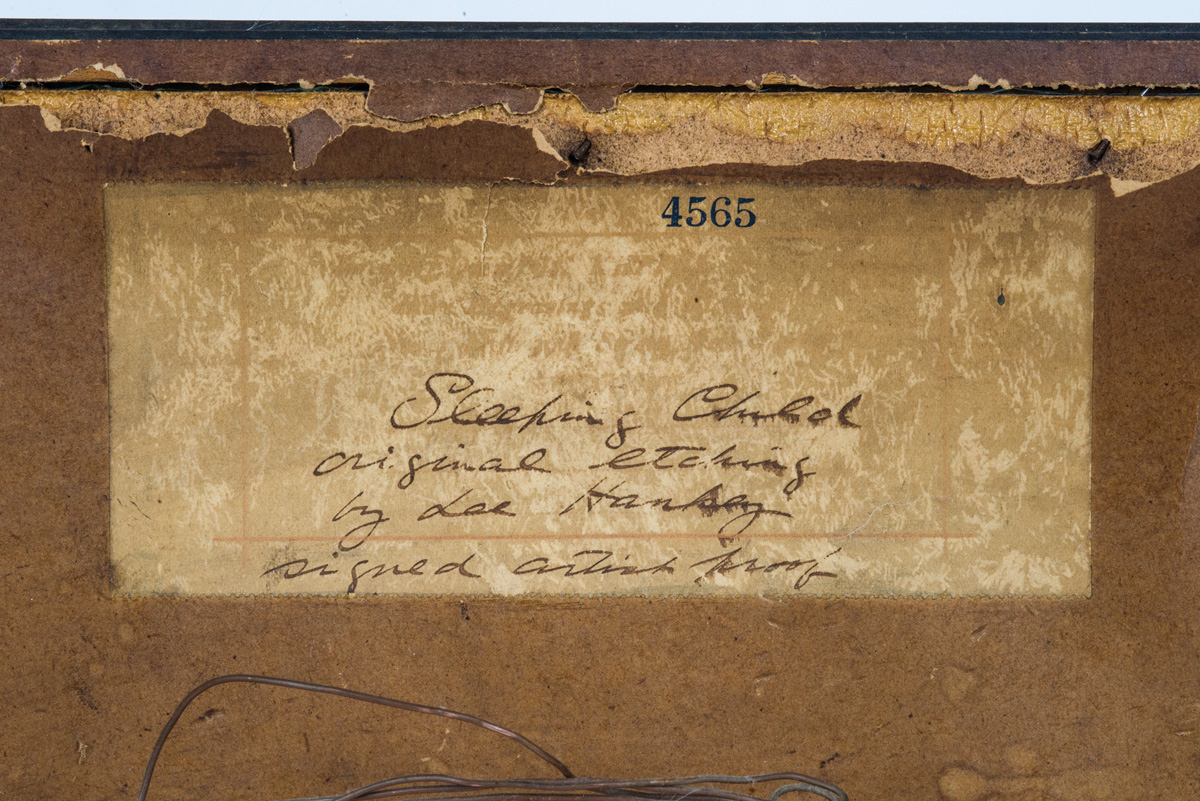 4565
Sleeping Child
original etching
by Lee Hankey
signed artist proof